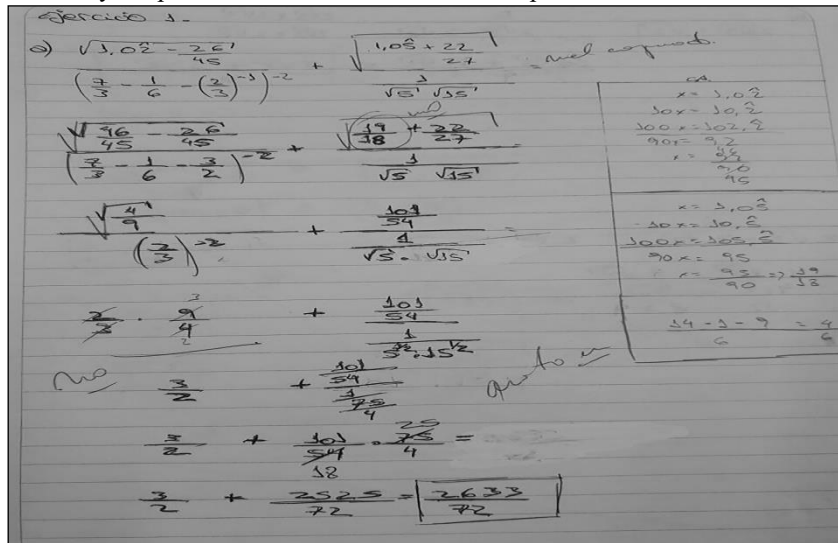 Ejercicio 1-
a) √(1,02̂ - 26/45) / (7/3 - 1/6 - (2/3)^-1)^-2 + √(1,05̂ + 22/27) / (1/(√5 √15)) = mal copiado.
√(46/45 - 26/45) / (7/3 - 1/6 - 3/2)^-2 + √(19/18 + 22/27) / (1/(√5 √15)) =
√(4/9) / (2/3)^-2 + (101/54) / (1/(√5 . √15)) =
2/3 . 9/4 + (101/54) / (1/(5^½ . 15^½))
3/2 + (101/54) / (1/(75/4))
3/2 + 101/54 . 75/4 =
25
18
3/2 + 2525/72 = 2633/72
CA.
x = 1,02̂
10x = 10,2̂
100x = 102,2̂
90x = 92
x = 92/90
x = 1,05̂
10x = 10,5̂
100x = 105,5̂
90x = 95
x = 95/90 => 19/18
14 - 1 - 9 / 6 = 4/6